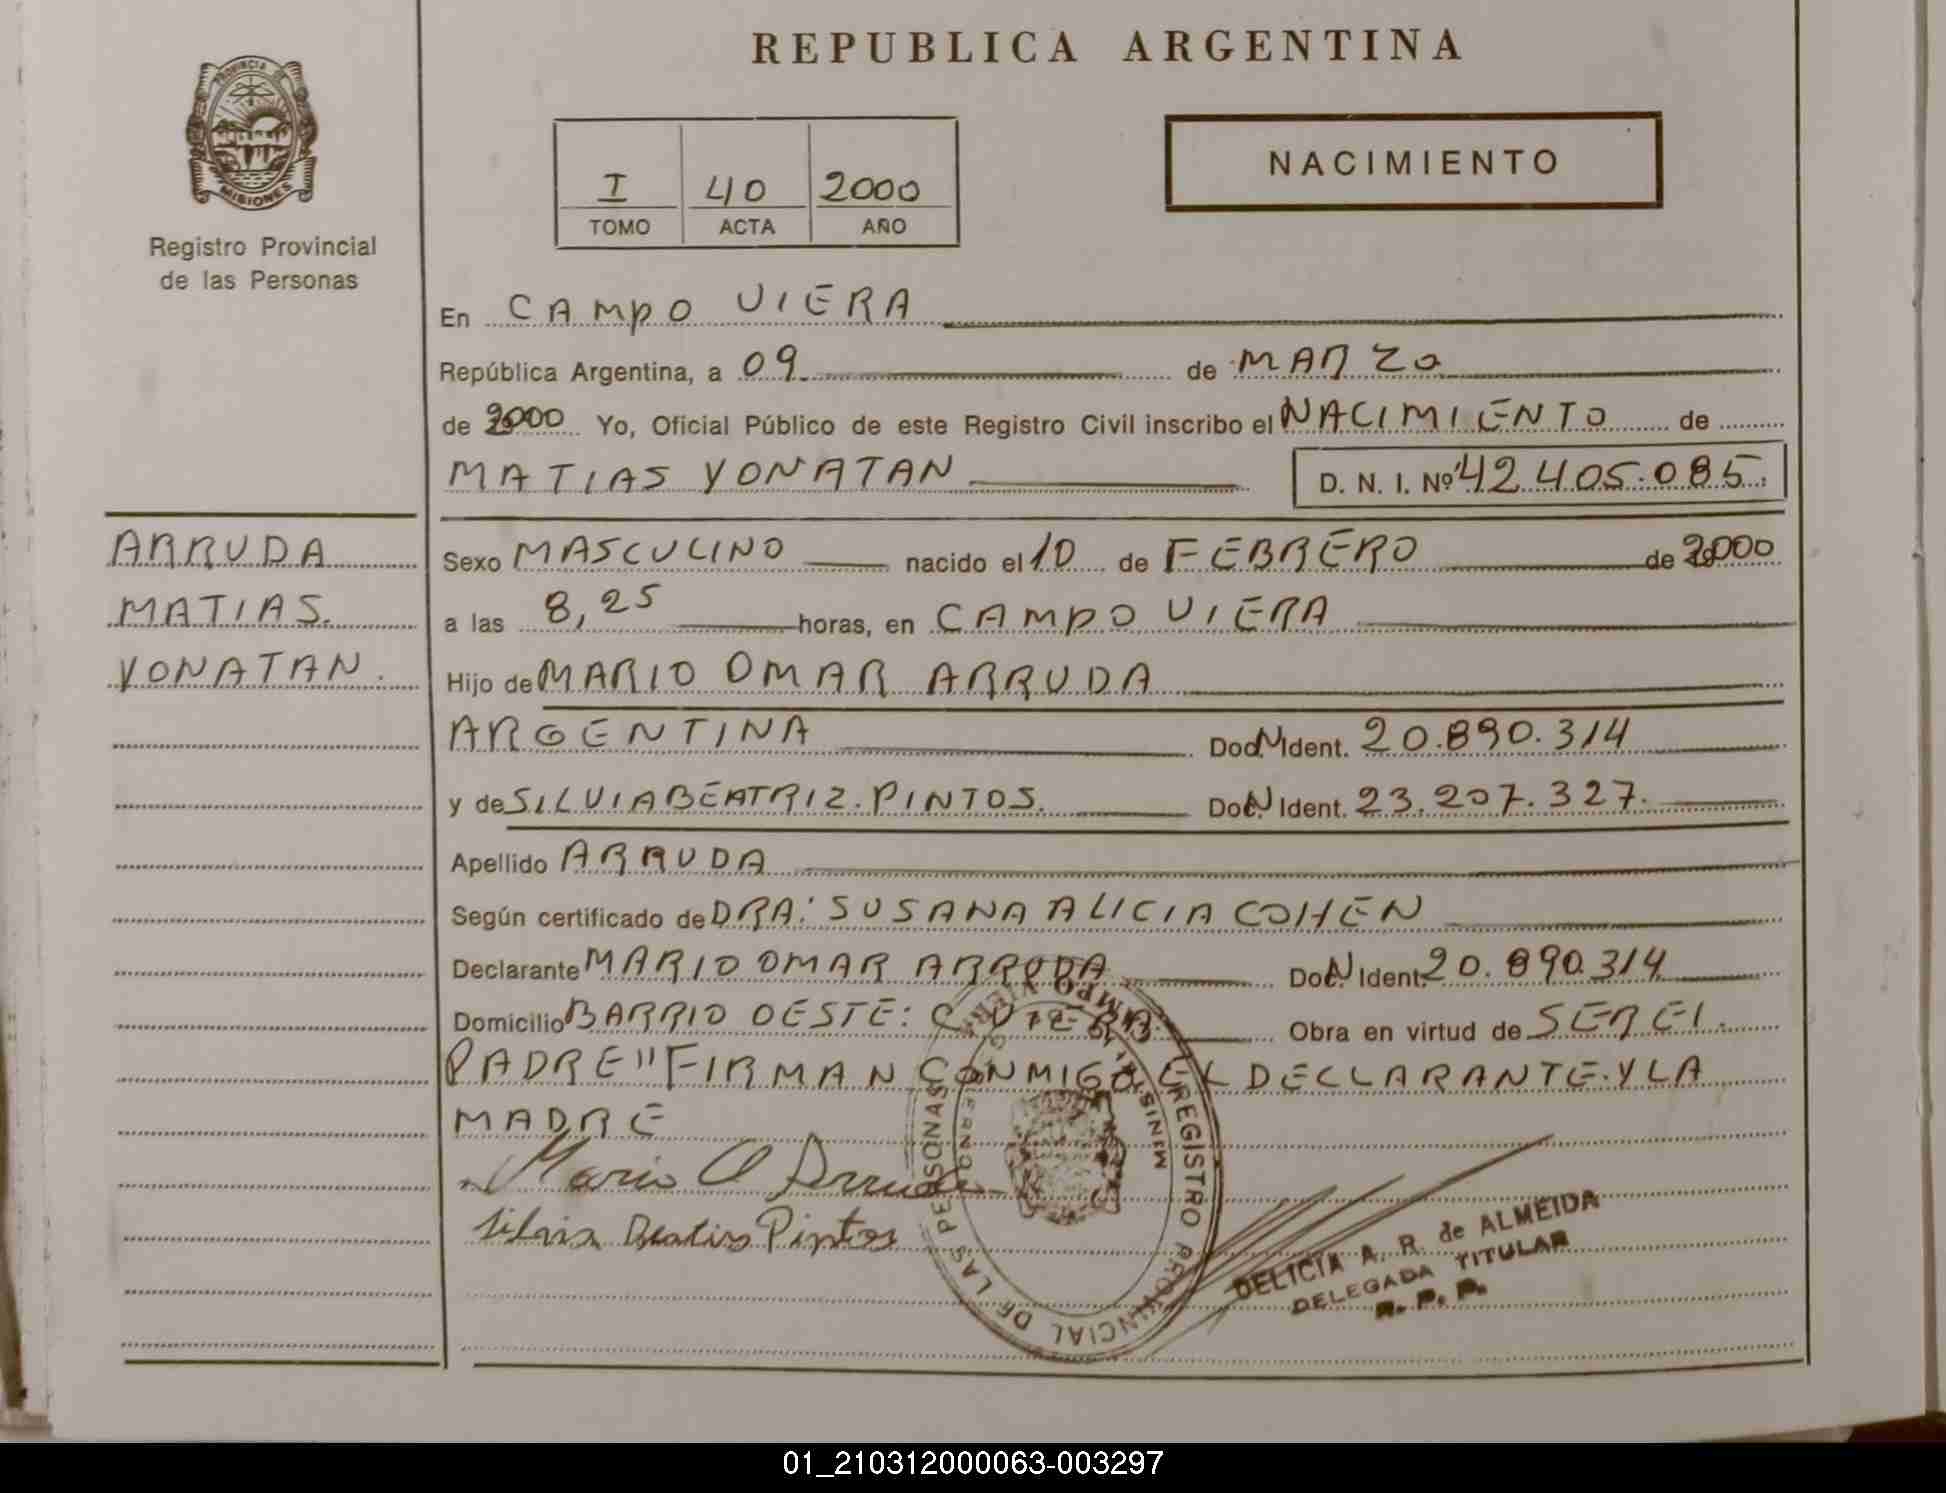 REPUBLICA ARGENTINA
PROVINCIA DE
MISIONES
Registro Provincial
de las Personas
I 40 2000
TOMO ACTA AÑO
NACIMIENTO
En CAMPO VIERA
República Argentina, a 09 de MARZO
de 2000 Yo, Oficial Público de este Registro Civil inscribo el NACIMIENTO de
MATIAS YONATAN D. N. I. Nº 42.405.085.
ARRUDA
MATIAS.
YONATAN.
Sexo MASCULINO nacido el 10 de FEBRERO de 2000
a las 8,25 horas, en CAMPO VIERA
Hijo de MARIO OMAR ARRUDA
ARGENTINA Doc. N Ident. 20.890.314
y de SILVIA BEATRIZ. PINTOS. Doc. N Ident. 23.207.327.
Apellido ARRUDA
Según certificado de DRA: SUSANA ALICIA COHEN
Declarante MARIO OMAR ARRUDA Doc. N Ident. 20.890.314
Domicilio BARRIO OESTE: C. VIERA. Obra en virtud de SER EL.
PADRE" FIRMAN CONMIGO EL DECLARANTE Y LA
MADRE
Mario O Arruda
Silvia Beatriz Pintos
REGISTRO PROVINCIAL DE LAS PERSONAS
CAMPO VIERA
DELICIA A. R. de ALMEIDA
DELEGADA TITULAR
R. P. P.
01_210312000063-003297